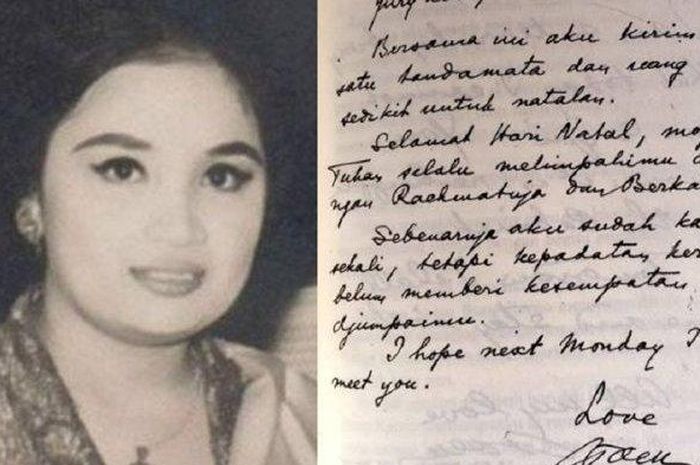 Bersama ini aku kirim
satu tandamata dan uang
sedikit untuk natalan.
Selamat Hari Natal,
Tuhan selalu melimpahimu
ngan Rachmatnja dan
Sebenarnja aku sudah
sekali, tetapi kepadatan
belum memberi kesempatan
djumpaimu.
I hope next Monday
meet you.
Love